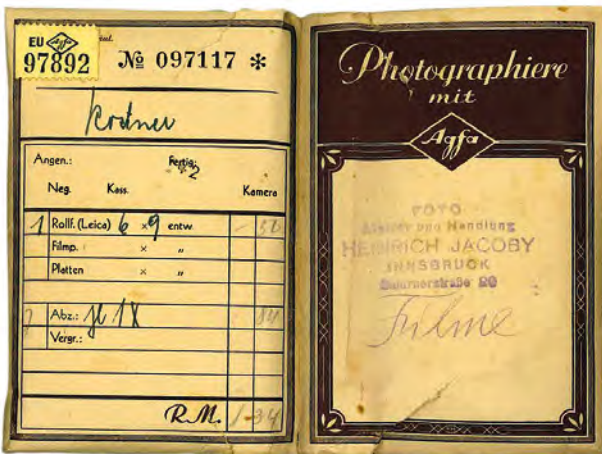 EU Agfa
97892
№ 097117 *
Angen.: Fertig:
2
Neg. Kass. Kamera
1 Rollf. (Leica) 6 x 9 entw. -.50
Filmp. x "
Platten x "
Abz.: je 1X .84
Vergr.:
R.M. 1.34
Photographiere
mit
Agfa
FOTO
Atelier und Handlung
HEINRICH JACOBY
INNSBRUCK
20
Filme